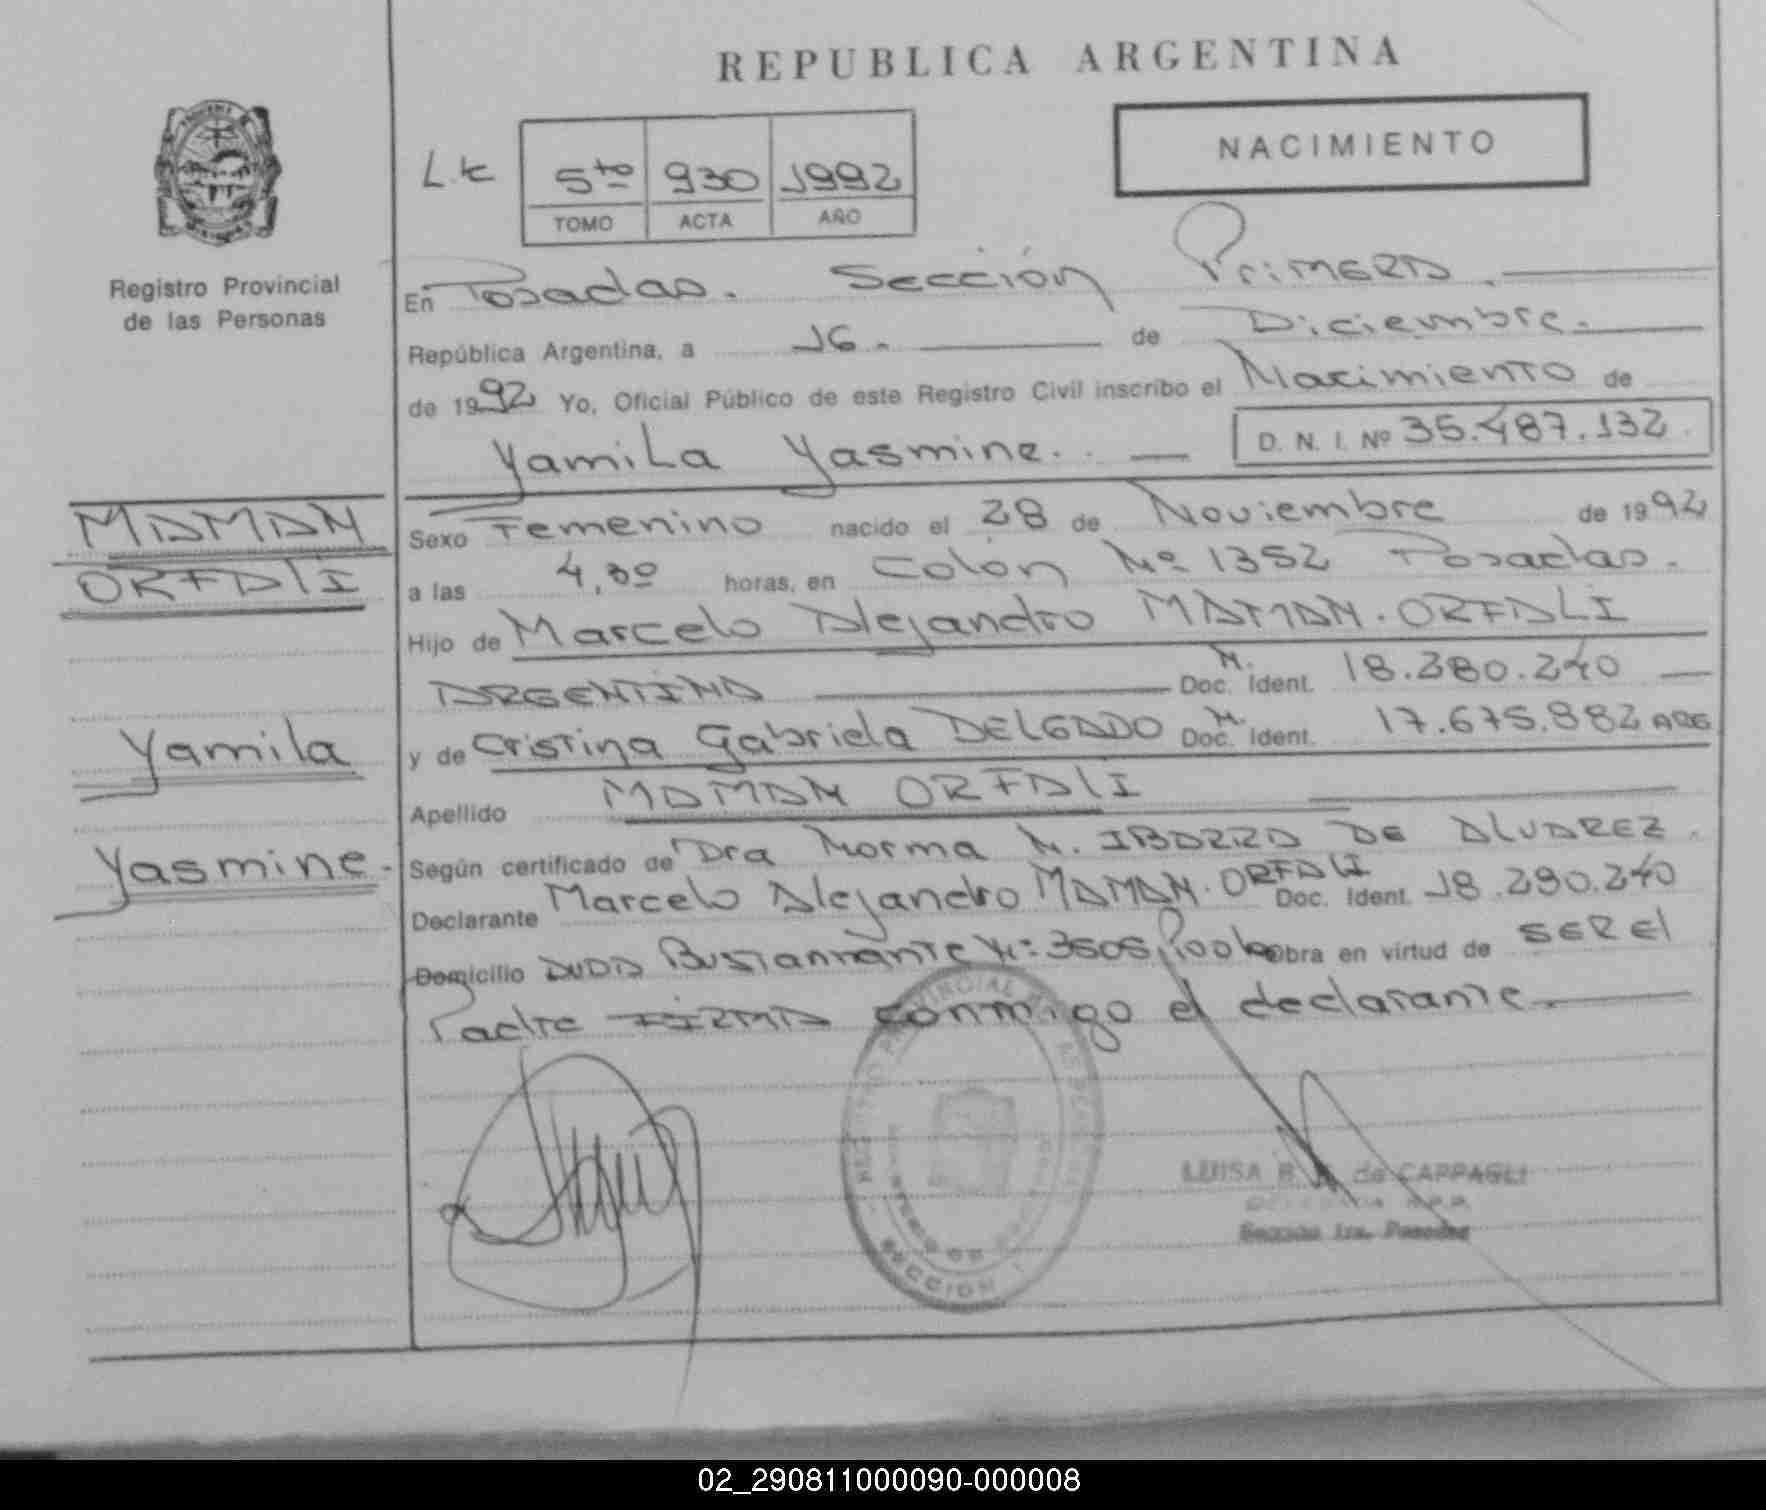 REPUBLICA ARGENTINA
NACIMIENTO
5to 930 1992
TOMO ACTA AÑO
Registro Provincial
de las Personas
En Posadas. Sección Primera.
República Argentina, a 16. de Diciembre.
de 1992 Yo, Oficial Público de este Registro Civil inscribo el Nacimiento de
Yamila Yasmine. D. N. I. Nº 35.487.132
MAMAN
ORFALI
Yamila
Yasmine
Sexo Femenino nacido el 28 de Noviembre de 1992
a las 4,30 horas, en Colón Nº 1352 Posadas.
Hijo de Marcelo Alejandro MAMAN. ORFALI
ARGENTINA M. Doc. Ident. 18.280.240
y de Cristina Gabriela DELGADO M. Doc. Ident. 17.675.882 ARG
Apellido MAMAN ORFALI
Según certificado de Dra Norma N. IBARRA DE ALVAREZ.
Declarante Marcelo Alejandro MAMAN. ORFALI Doc. Ident. 18.290.240
Domicilio AVDA Bustamante Nº 3505 obra en virtud de SER El
Padre FIRMA conmigo el declarante.
REGISTRO PROVINCIAL DE LAS PERSONAS
SECCION 1
LUISA B. de CAPPAGLI
Sección 1ra. Posadas
02_290811000090-000008